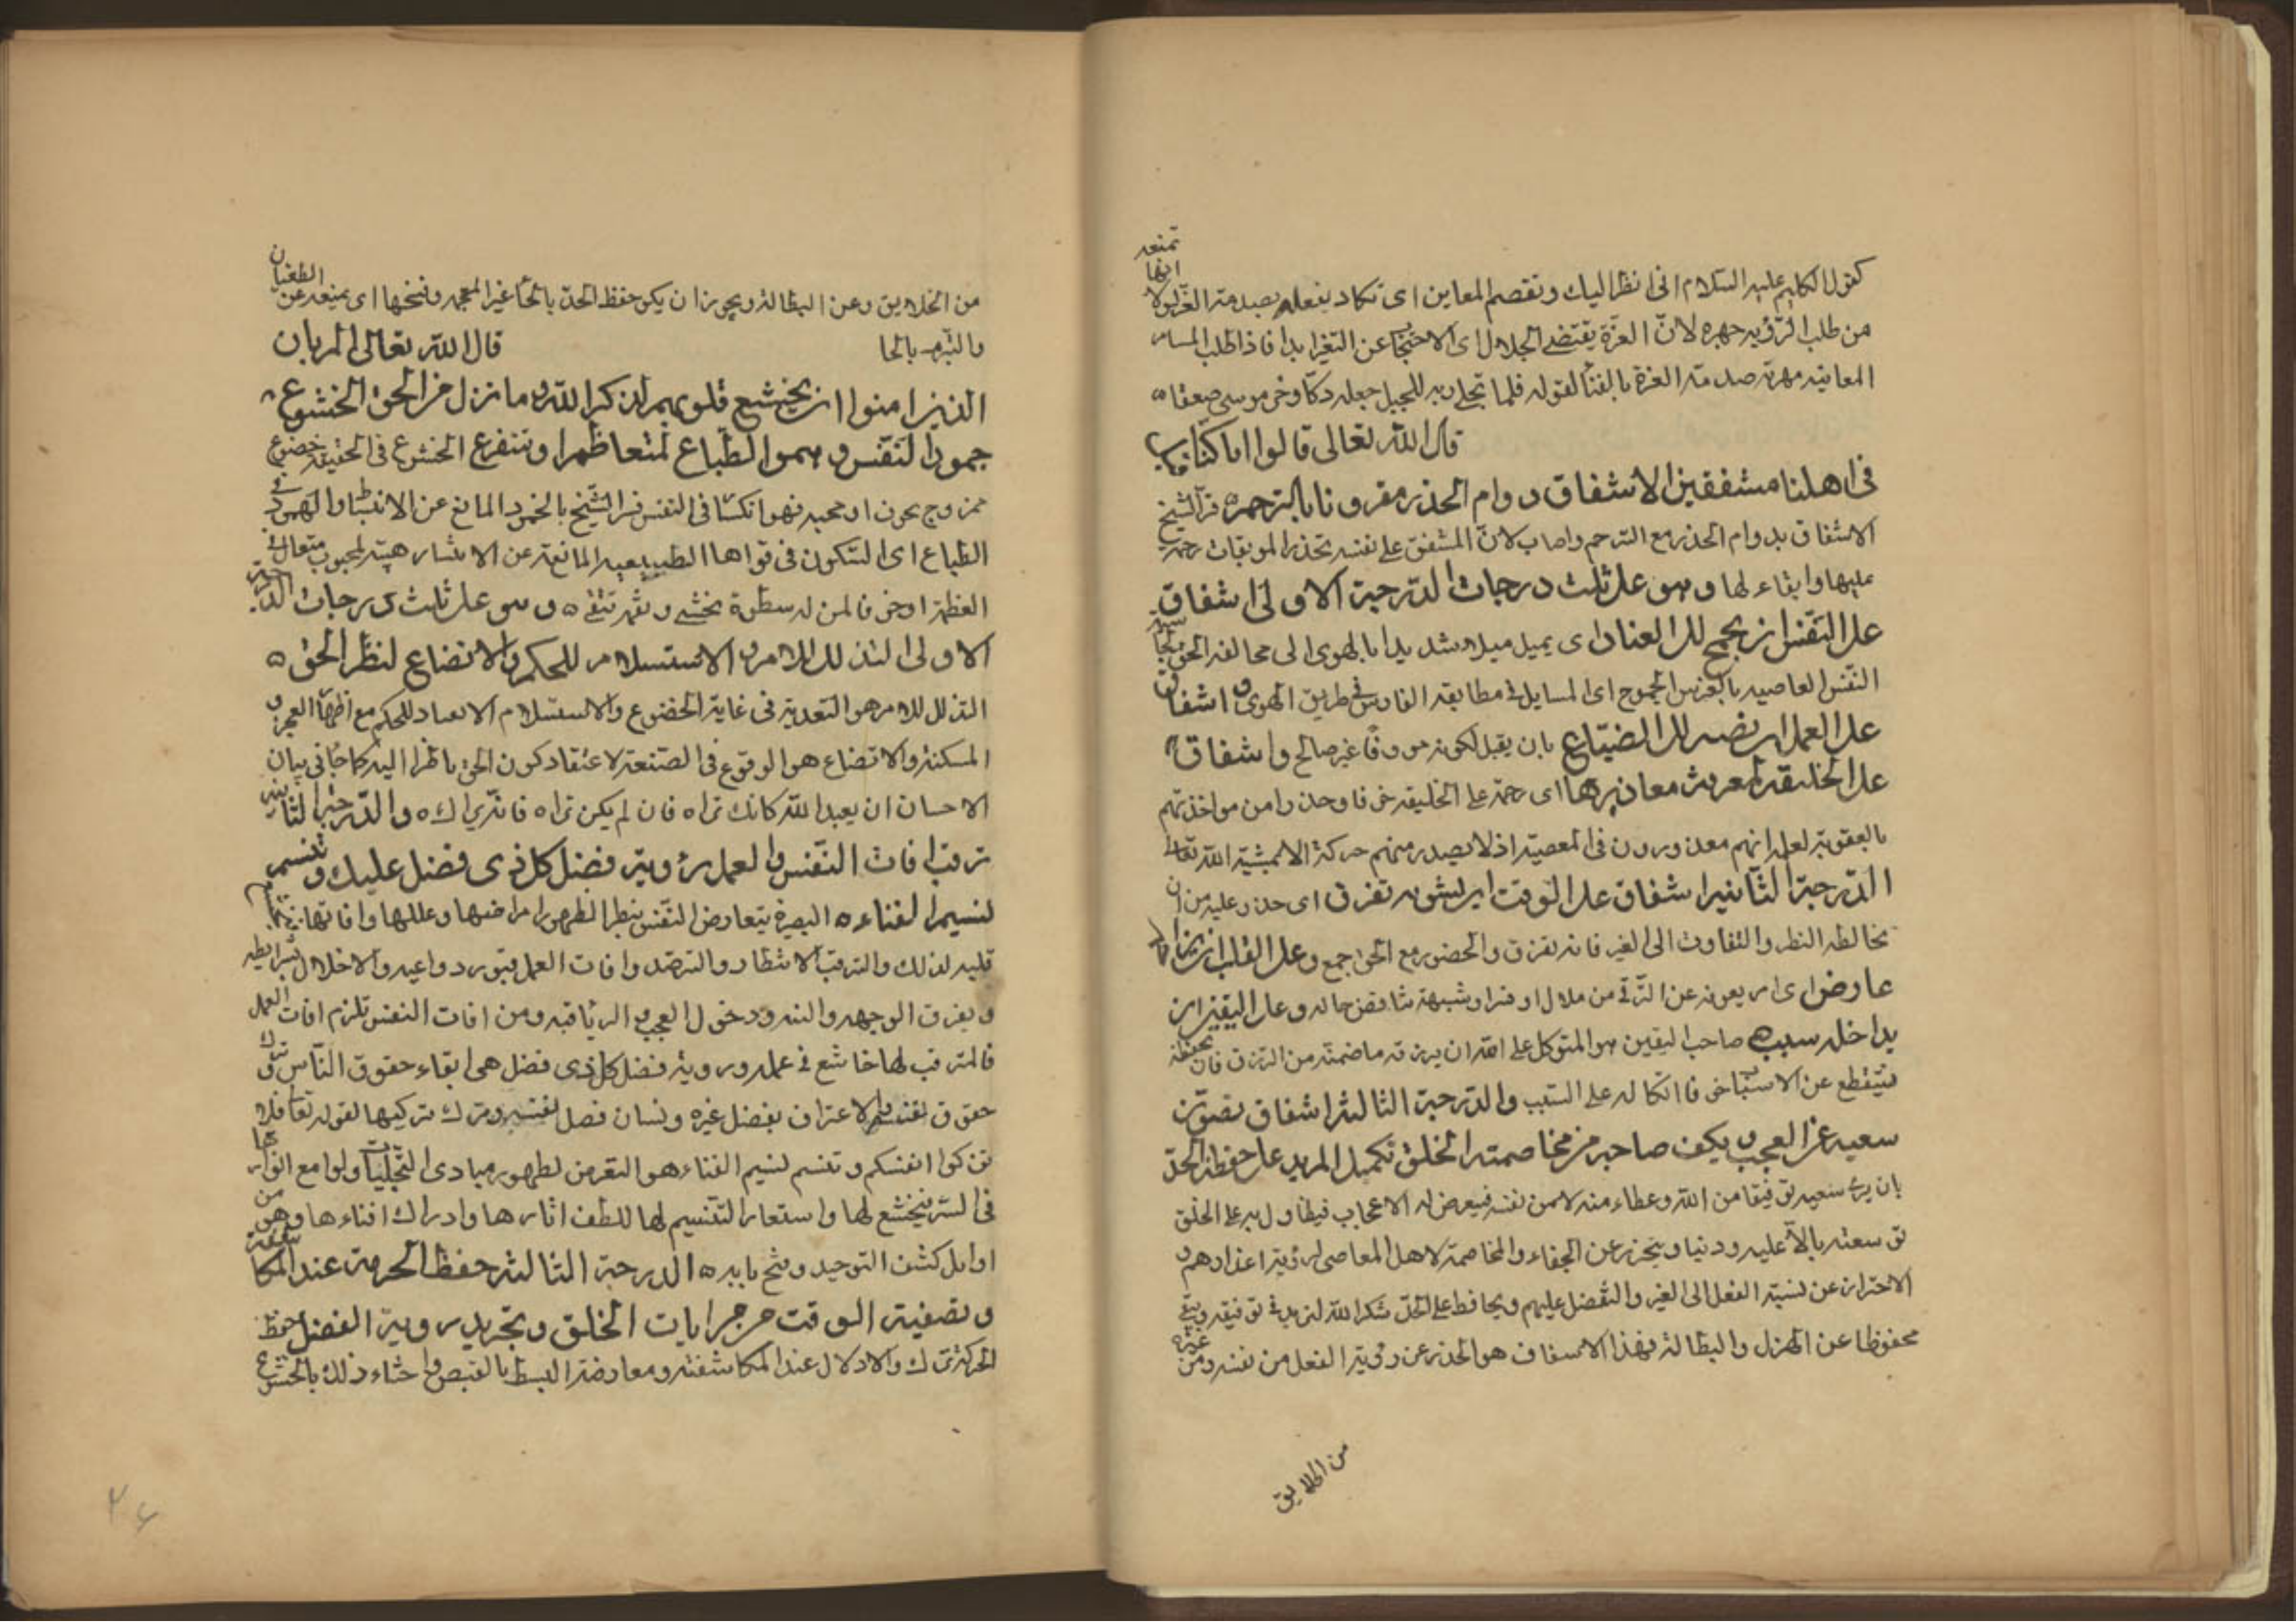 كقول الكليم عليه السلام انى انظر اليك وتقصم المعاين اى تكاد بفعله بصدمة العز لولا انها تمنعه
من طلب الرؤيه جهره لانّ العزة يقتضى الجلال اى الاحتجاب عن التغير ابدا فاذا طلب المسامر
المعاينه مهرته صدمة العزة بالفنا لقوله فلما تجلى ربه للجبل جعله دكّا وخر موسى صعقا ه
قال الله تعالى قالوا انا كنّا قبل
فى اهلنا مشفقين الاشفاق دوام الحذر مقرونا بالترحم ه فسر الشيخ
الاشفاق بدوام الحذر مع الترحم واصاب لانّ المشفق على نفسه يحذر الموبقات رحمة
عليها وابقاء لها وهو على ثلث درجات الدّرجة الاولى اشفاق
على النّفس ان يجمح الى العناد اى يميل ميلا شديدا بالهوى الى مخالفه الحق
النّفس العاصيه بالفرس الجموح اى المسايل فى مطابقه الفارس فى طريق الهوى واشفاق
على العمل ان يصير الى الضيّاع بان يقبل لكونه غير صالح واشفاق
على الخليقة لمعرفة معاذيرها اى رحمة على الخليقه خوفا وحذرا من مواخذتهم
بالعقوبة لعلمه انهم معذورون فى المعصية اذ لا يصدر منهم حركة الا بمشيّة الله تعالى
الدّرجة الثانيه اشفاق على الوقت ان يشوبه تفرق اى حذر عليه من ان
يخالطه النظر والتفاوت الى الغير فانه تفرق والحضور مع الحق جمع وعلى القلب ان يزاحمه
عارض اى امر يعوقه عن الترقى من ملال او فترة او شبهة تناقض حاله وعلى اليقين ان
يداخله سبب ه صاحب اليقين هو المتوكل على الله ان يرزقه ما ضمنه من الرزق فان تحققه
فينقطع عن الاسباب خوفا اتكاله على السّبب والدّرجة الثالثة اشفاق يصون
سعيه عن العجب ويكف صاحبه من مخاصمته الخلق تكميل المريد على حفظ الحدّ
بان يرى سعيه توفيقا من الله وعطاء منه لا من نفسه فيعرض له الاعجاب فيطاول به على الخلق
توسعته عليه ودنيا ويحترز عن الجفاء والمخاصمة لاهل المعاصى لرؤية اعذارهم و
الاحتراز عن نسبة الفعل الى الغير والتّفضل عليهم ويحافظ على الحدّ شكرا لله لتزيد فى توفيقه ويبقى
محفوظا عن الهزل والبطالة فهذا الاشفاق هو الحذر عن رؤية الفعل من نفسه ومن غيره
من الخلايق
من الخلايق وعن البطالة ويجوز ان يكون حفظ الحدّ بالحا غير المعجمه وفتحها اى يمنعه عن الطغيان
والتبرم بالحا قال الله تعالى الم يان
الذين امنوا ان يخشع قلوبهم لذكر الله وما نزل من الحق الخشوع
خمود النّفس وهمود الطّباع لمتعاظم او متفزع الخشوع فى الحقيقه خضوع
ممزوج بحزن او محبه فهو انكسار فى النفس فسر الشّيخ بالخمود المانع عن الانبساط والهمود فى
الطّباع اى السّكون فى قواها الطبيعيه المانعة عن الانتشار هيبة لمحبوب متعال فى
العظمة او خوفا لمن له سطوة يخشى ونقمة تتقى ه وهو على ثلث درجات الدّرجة
الاولى التذلل للامر والاستسلام للحكم والاتضاع لنظر الحق ه
التذلل للامر هو التعبد به فى غاية الخضوع والاستسلام الانقياد للحكم مع اظهار العجز و
المسكنة والاتضاع هو الوقوع فى الضعة لاعتقاد كون الحق ناظرا اليه كما جا فى بيان
الاحسان ان يعبد الله كانك تراه فان لم يكن تراه فانه يراك ه والدّرجة الثانية
ترقب افات النّفس والعمل ورؤية فضل كل ذى فضل عليك وتنسم
نسيم الفناء ه البصيرة يتعارض النّفس بنظر الظهور امراضها وعللها وافاتها
قلبه لذلك والترقب الانتظار والترصّد وافات العمل فتور دواعيه والاخلال بشرايطه
وبفرق الوجهه والنيه ودخول العجب والريا فيه ومن افات النفس تلزم افات العمل
فالمترقب لها خاشع فى عمله ورؤية فضل كل ذى فضل هى ابقاء حقوق النّاس وترك
حقوق نفسه والاعتراف بفضل غيره ونسيان فضل نفسه وترك تزكيها لقوله تعالى فلا
تزكوا انفسكم وتنسم نسيم الفناء هو التعرض لظهور مبادى التّجليات ولوامع انوارها
فى السّر فيخشع لها واستعار التنسيم لها للطف اثارها وادراك افناءها وهو من
اوايل كشف التوحيد وفتح بابه ه الدرجة الثالثة حفظ الحرمة عند المكاشفة
وتصفية الوقت من مرايات الخلق وتجريد روية الفضل حفظ
الحرمة ترك الادلال عند المكاشفة ومعارضة البسط بالقبض واخشاء ذلك بالخشوع
٢٤